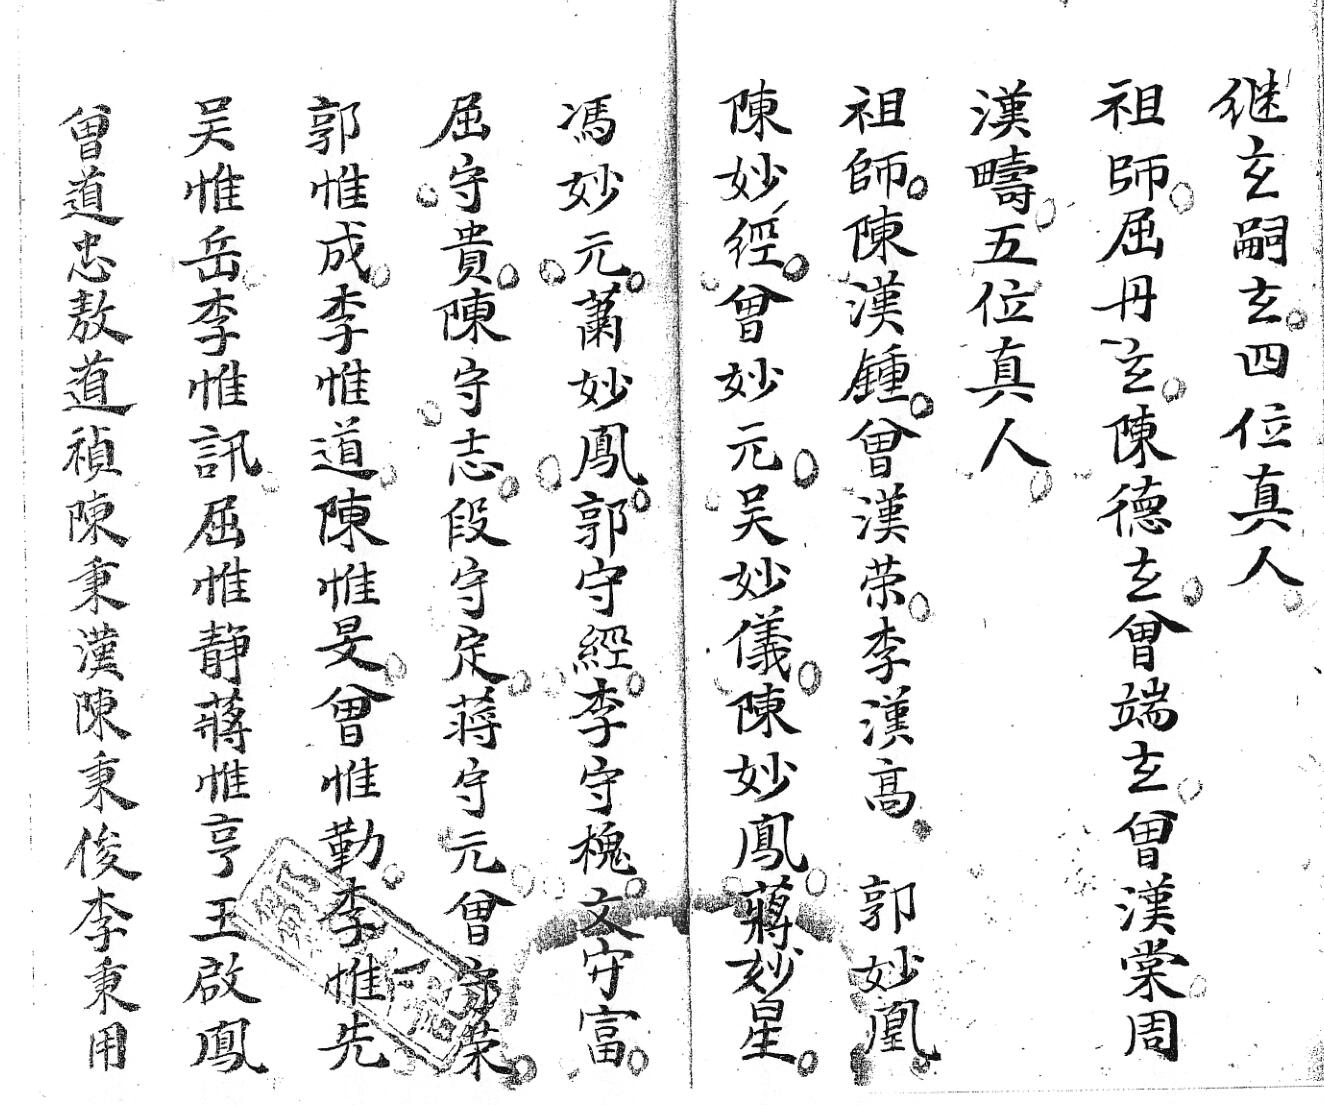 继玄嗣玄四位真人
祖師屈丹玄陳德玄曾端玄曾漢棠周
漢疇五位真人
祖師陳漢鍾曾漢荣李漢高 郭妙凰
陳妙經曾妙元吴妙儀陳妙鳳蔣妙星
馮妙元蕭妙鳳郭守經李守槐文守富
屈守貴陳守志段守定蒋守元曾守荣
郭惟成李惟道陳惟旻曾惟勤李惟先
吴惟岳李惟訊屈惟静蔣惟亨王啟鳳
曾道忠敖道禎陳秉漢陳秉俊李秉用